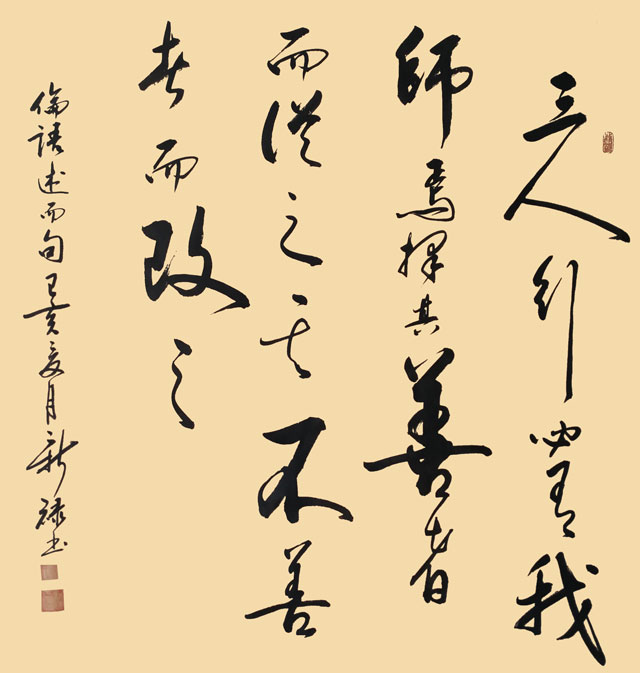 三人行必有我
師焉擇其善者
而從之其不善
者而改之
倫語述而句己亥夏月新祿书